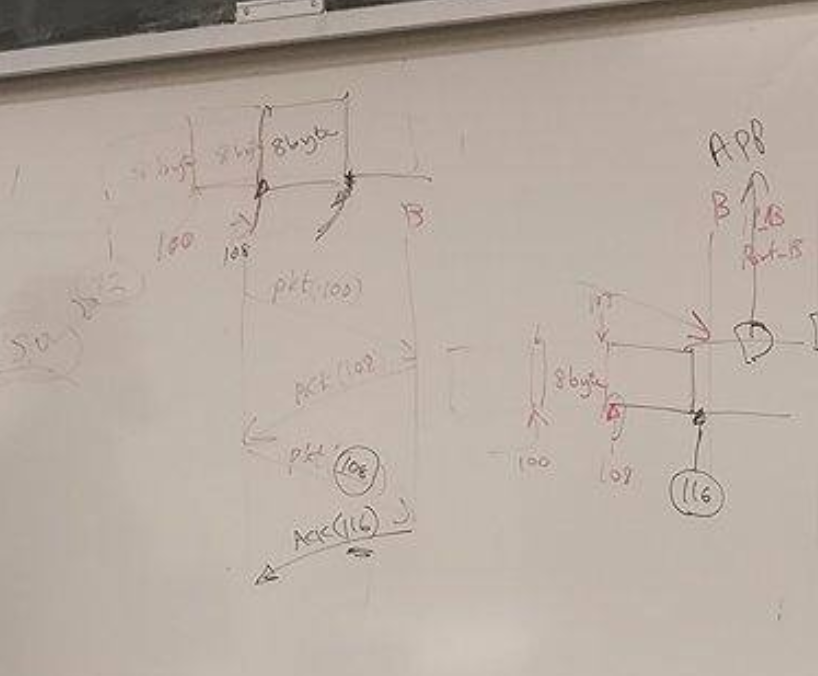 8byte
8byte
100
108
B
pkt(100)
Ack(108)
pkt(108)
Ack(116)
APP
B
Port-B
107
8byte
100
108
116